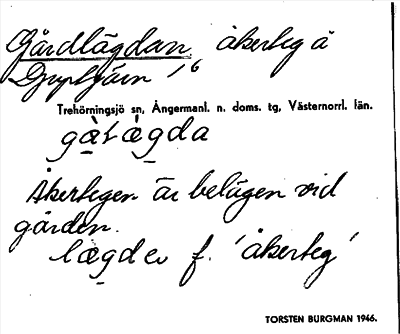 Gårdlägdan, åkerteg å
Djuptjärn 1⁶
Trehörningsjö sn, Ångermanl. n. doms. tg, Västernorrl. län.
Åkertegen är belägen vid
gården.
lægdev f. 'åkerteg'
TORSTEN BURGMAN 1946.